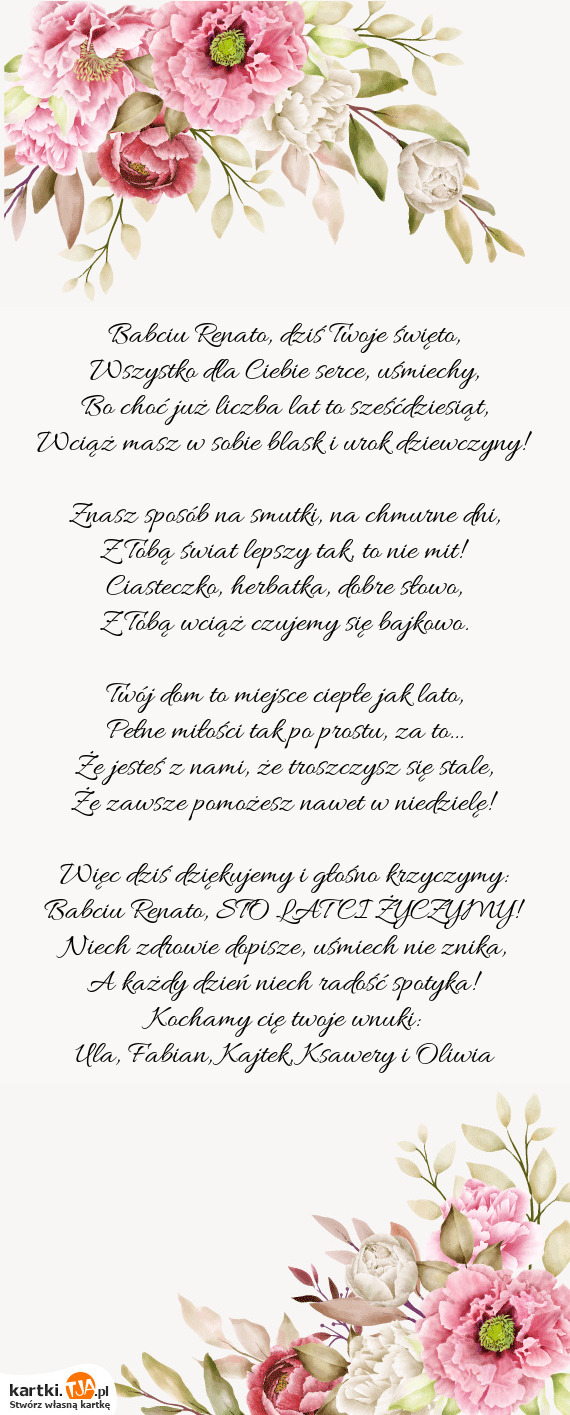 Babciu Renato, dziś Twoje święto,
Wszystko dla Ciebie serce, uśmiechy,
Bo choć już liczba lat to sześćdziesiąt,
Wciąż masz w sobie blask i urok dziewczyny!
Znasz sposób na smutki, na chmurne dni,
Z Tobą świat lepszy tak, to nie mit!
Ciasteczko, herbatka, dobre słowo,
Z Tobą wciąż czujemy się bajkowo.
Twój dom to miejsce ciepłe jak lato,
Pełne miłości tak po prostu, za to...
Że jesteś z nami, że troszczysz się stale,
Że zawsze pomożesz nawet w niedzielę!
Więc dziś dziękujemy i głośno krzyczymy:
Babciu Renato, STO LAT CI ŻYCZYMY!
Niech zdrowie dopisze, uśmiech nie znika,
A każdy dzień niech radość spotyka!
Kochamy cię twoje wnuki:
Ula, Fabian, Kajtek, Ksawery i Oliwia
kartki.TJA.pl
Stwórz własną kartkę